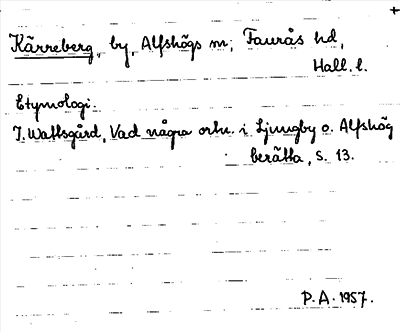 +
Kärreberg, by, Alfshögs sn; Faurås hd,
Hall. l.
Etymologi.
J. Wattsgård, Vad några ortn. i Ljungby o. Alfshög
berätta, s. 13.
P.A. 1957.